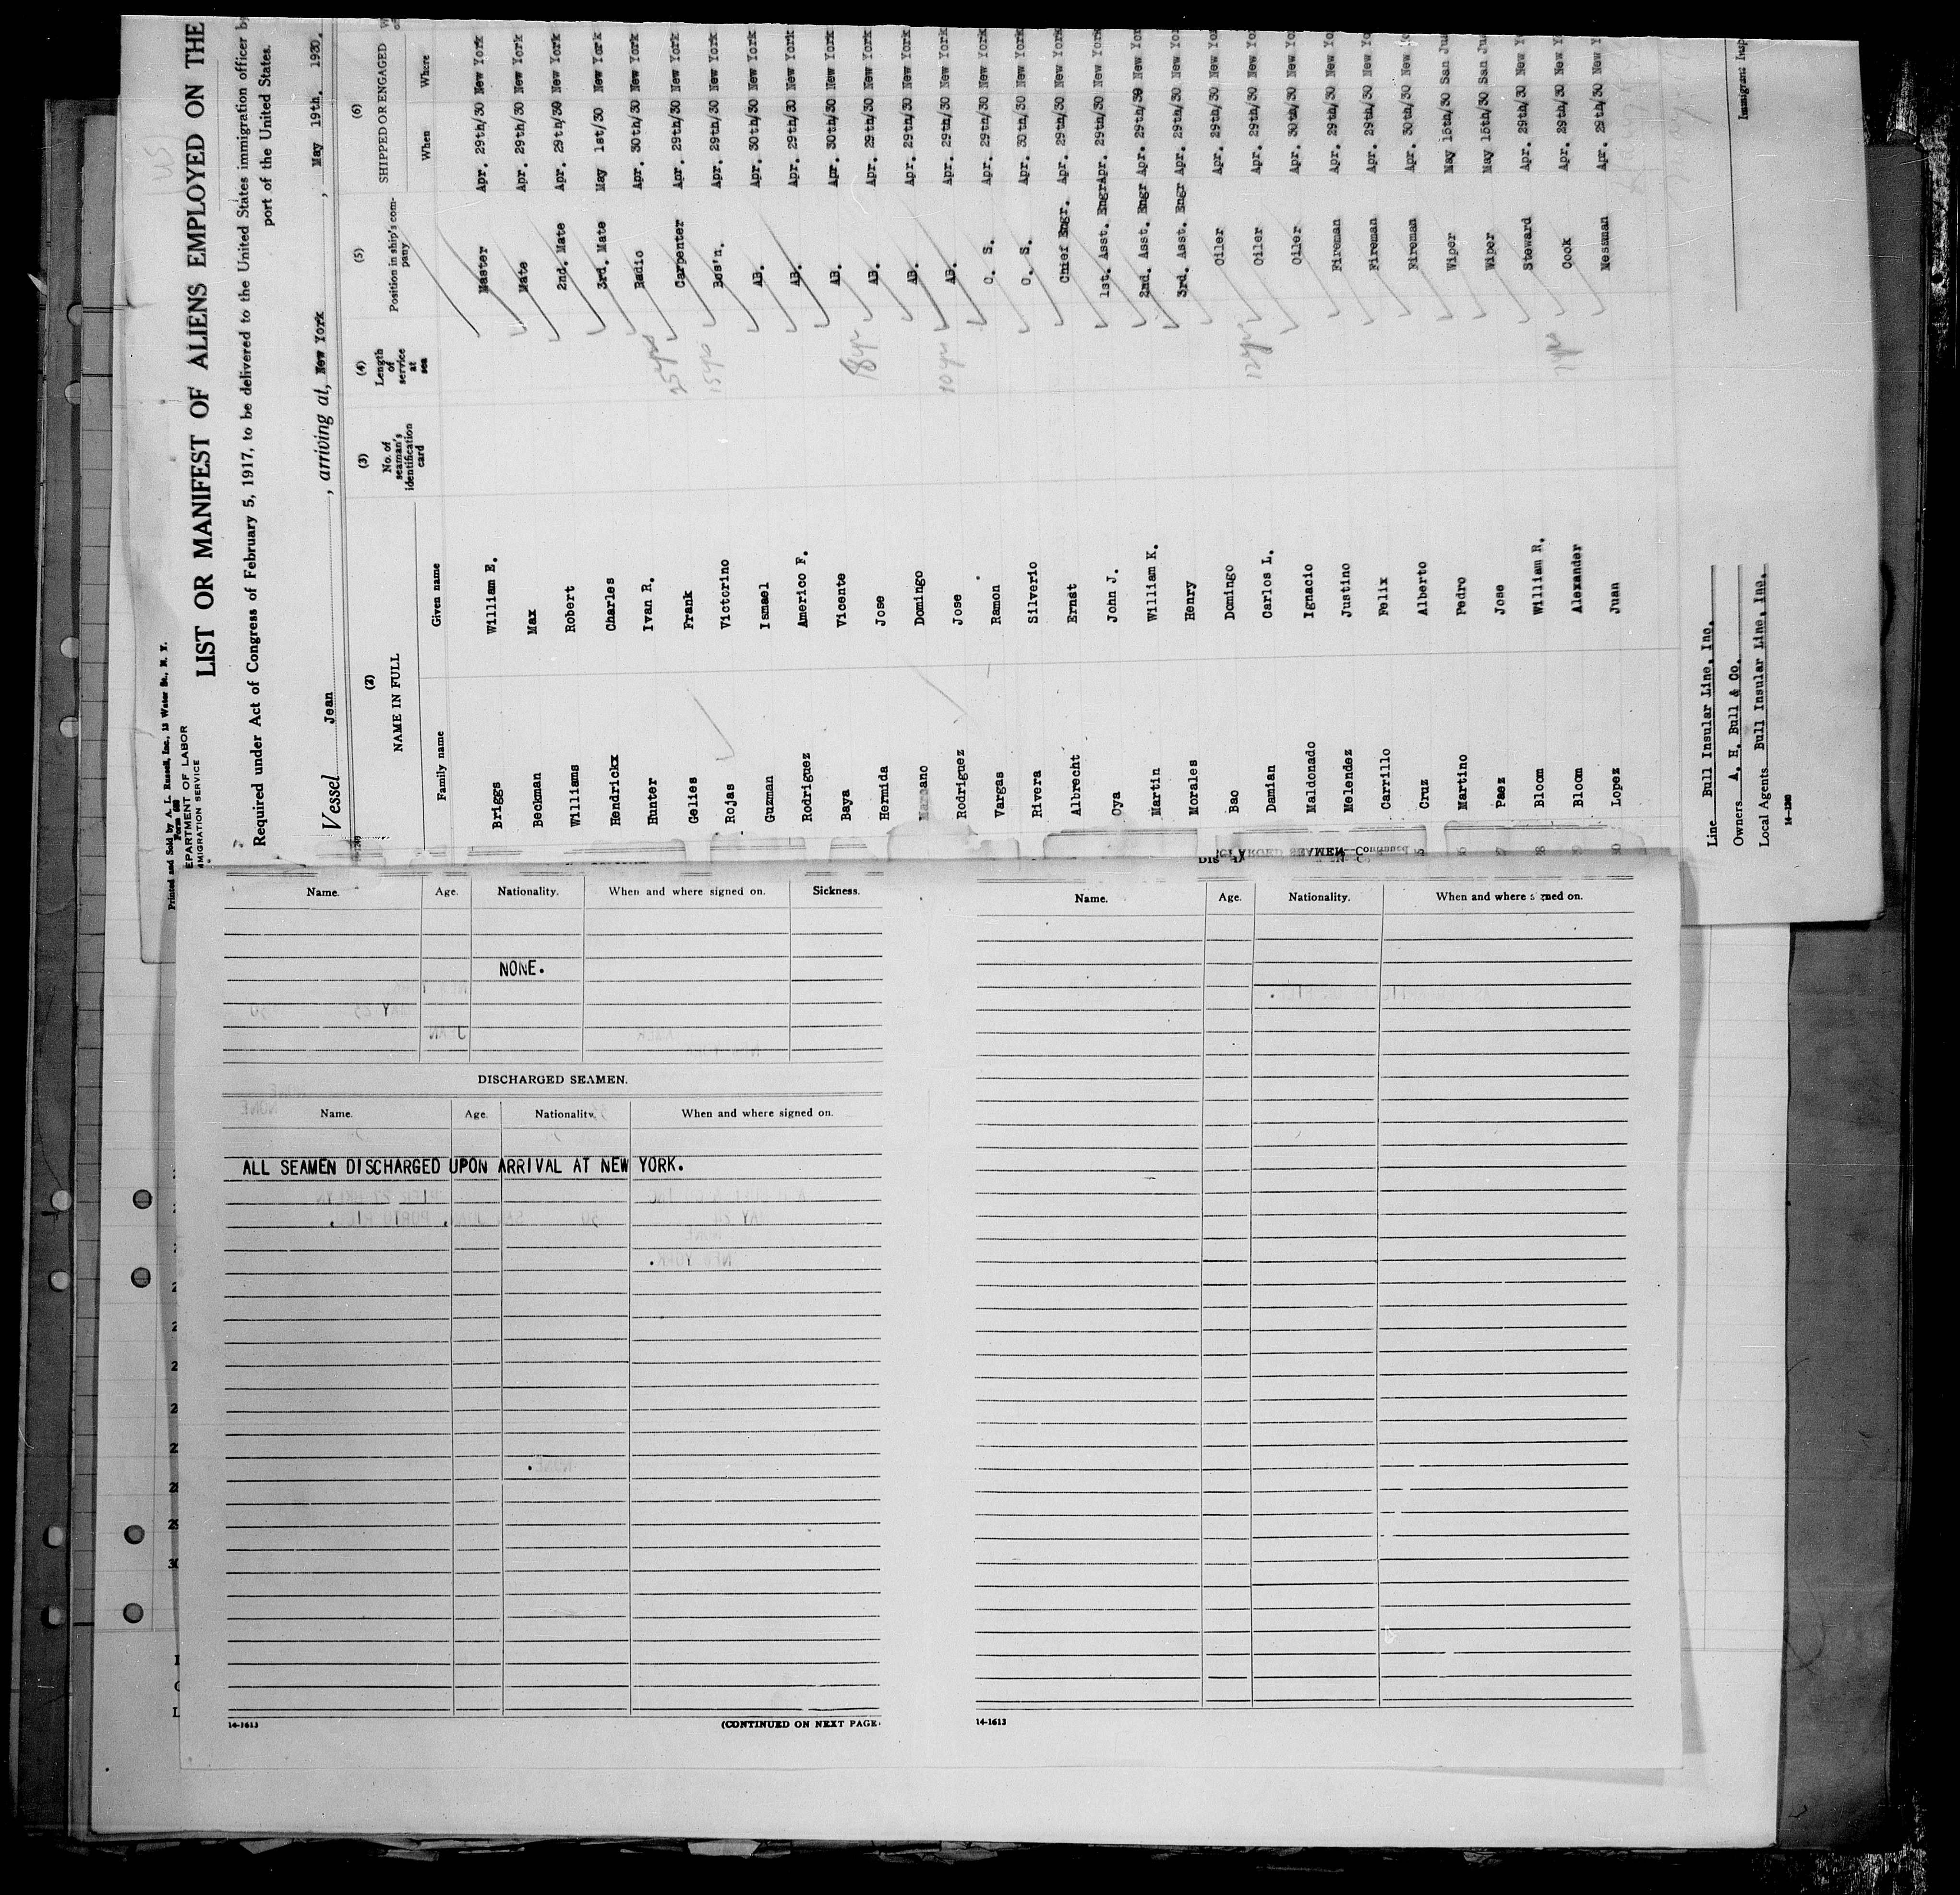 Printed and Sold by A. L. Russell, Inc., 15 Water St., N. Y.
Form 680
EPARTMENT OF LABOR
MIGRATION SERVICE
LIST OR MANIFEST OF ALIENS EMPLOYED ON THE
Required under Act of Congress of February 5, 1917, to be delivered to the United States immigration officer by
port of the United States.
Vessel Jean, arriving at, New York, May 19th. 1930.
(2) (3) (4) (5) (6)
NAME IN FULL No. of seaman's identification card Length of service at sea Position in ship's company SHIPPED OR ENGAGED
Family name Given name When Where
Briggs William E. Master Apr. 29th/30 New York
Beckman Max Mate Apr. 29th/30 New York
Williams Robert 2nd. Mate Apr. 29th/30 New York
Hendrickx Charles 3rd. Mate May 1st/30 New York
Hunter Ivan R. Radio Apr. 30th/30 New York
Gelies Frank 25 yrs Carpenter Apr. 29th/30 New York
Rojas Victorino 15 yrs Bos'n. Apr. 29th/30 New York
Guzman Ismael AB. Apr. 30th/30 New York
Rodriguez Americo F. AB. Apr. 29th/30 New York
Baya Vicente AB. Apr. 30th/30 New York
Hermida Jose 18 yrs AB. Apr. 29th/30 New York
Domingo AB. Apr. 29th/30 New York
Rodriguez Jose 10 yrs AB. Apr. 29th/30 New York
Vargas Ramon O. S. Apr. 29th/30 New York
Rivera Silverio O. S. Apr. 30th/30 New York
Albrecht Ernst Chief Engr. Apr. 29th/30 New York
Oya John J. 1st. Asst. Engr Apr. 29th/30 New York
Martin William K. 2nd. Asst. Engr Apr. 29th/30 New Yor
Morales Henry 3rd. Asst. Engr Apr. 29th/30 New Yor
Bao Domingo Oiler Apr. 29th/30 New Yor
Damian Carlos L. 12 yrs Oiler Apr. 29th/30 New Yor
Maldonado Ignacio Oiler Apr. 30th/30 New Yor
Melendez Justino Fireman Apr. 29th/30 New Yo
Carrillo Felix Fireman Apr. 29th/30 New Yo
Cruz Alberto Fireman Apr. 30th/30 New Yo
Martino Pedro Wiper May 15th/30 San Jua
Paez Jose Wiper May 15th/30 San Jua
Bloom William R. Steward Apr. 29th/30 New Y
Bloom Alexander Cook Apr. 29th/30 New Y
Lopez Juan Messman Apr. 29th/30 New Y
Line Bull Insular Line, Inc.
Owners A. H. Bull & Co.
Local Agents Bull Insular Line, Inc.
14-1240
Immigrant Insp
Name. Age. Nationality. When and where signed on. Sickness.
NONE.
DISCHARGED SEAMEN.
Name. Age. Nationality. When and where signed on.
ALL SEAMEN DISCHARGED UPON ARRIVAL AT NEW YORK.
14-1613
(CONTINUED ON NEXT PAGE
DISCHARGED SEAMEN—Continued
Name. Age. Nationality. When and where signed on.
14-1613